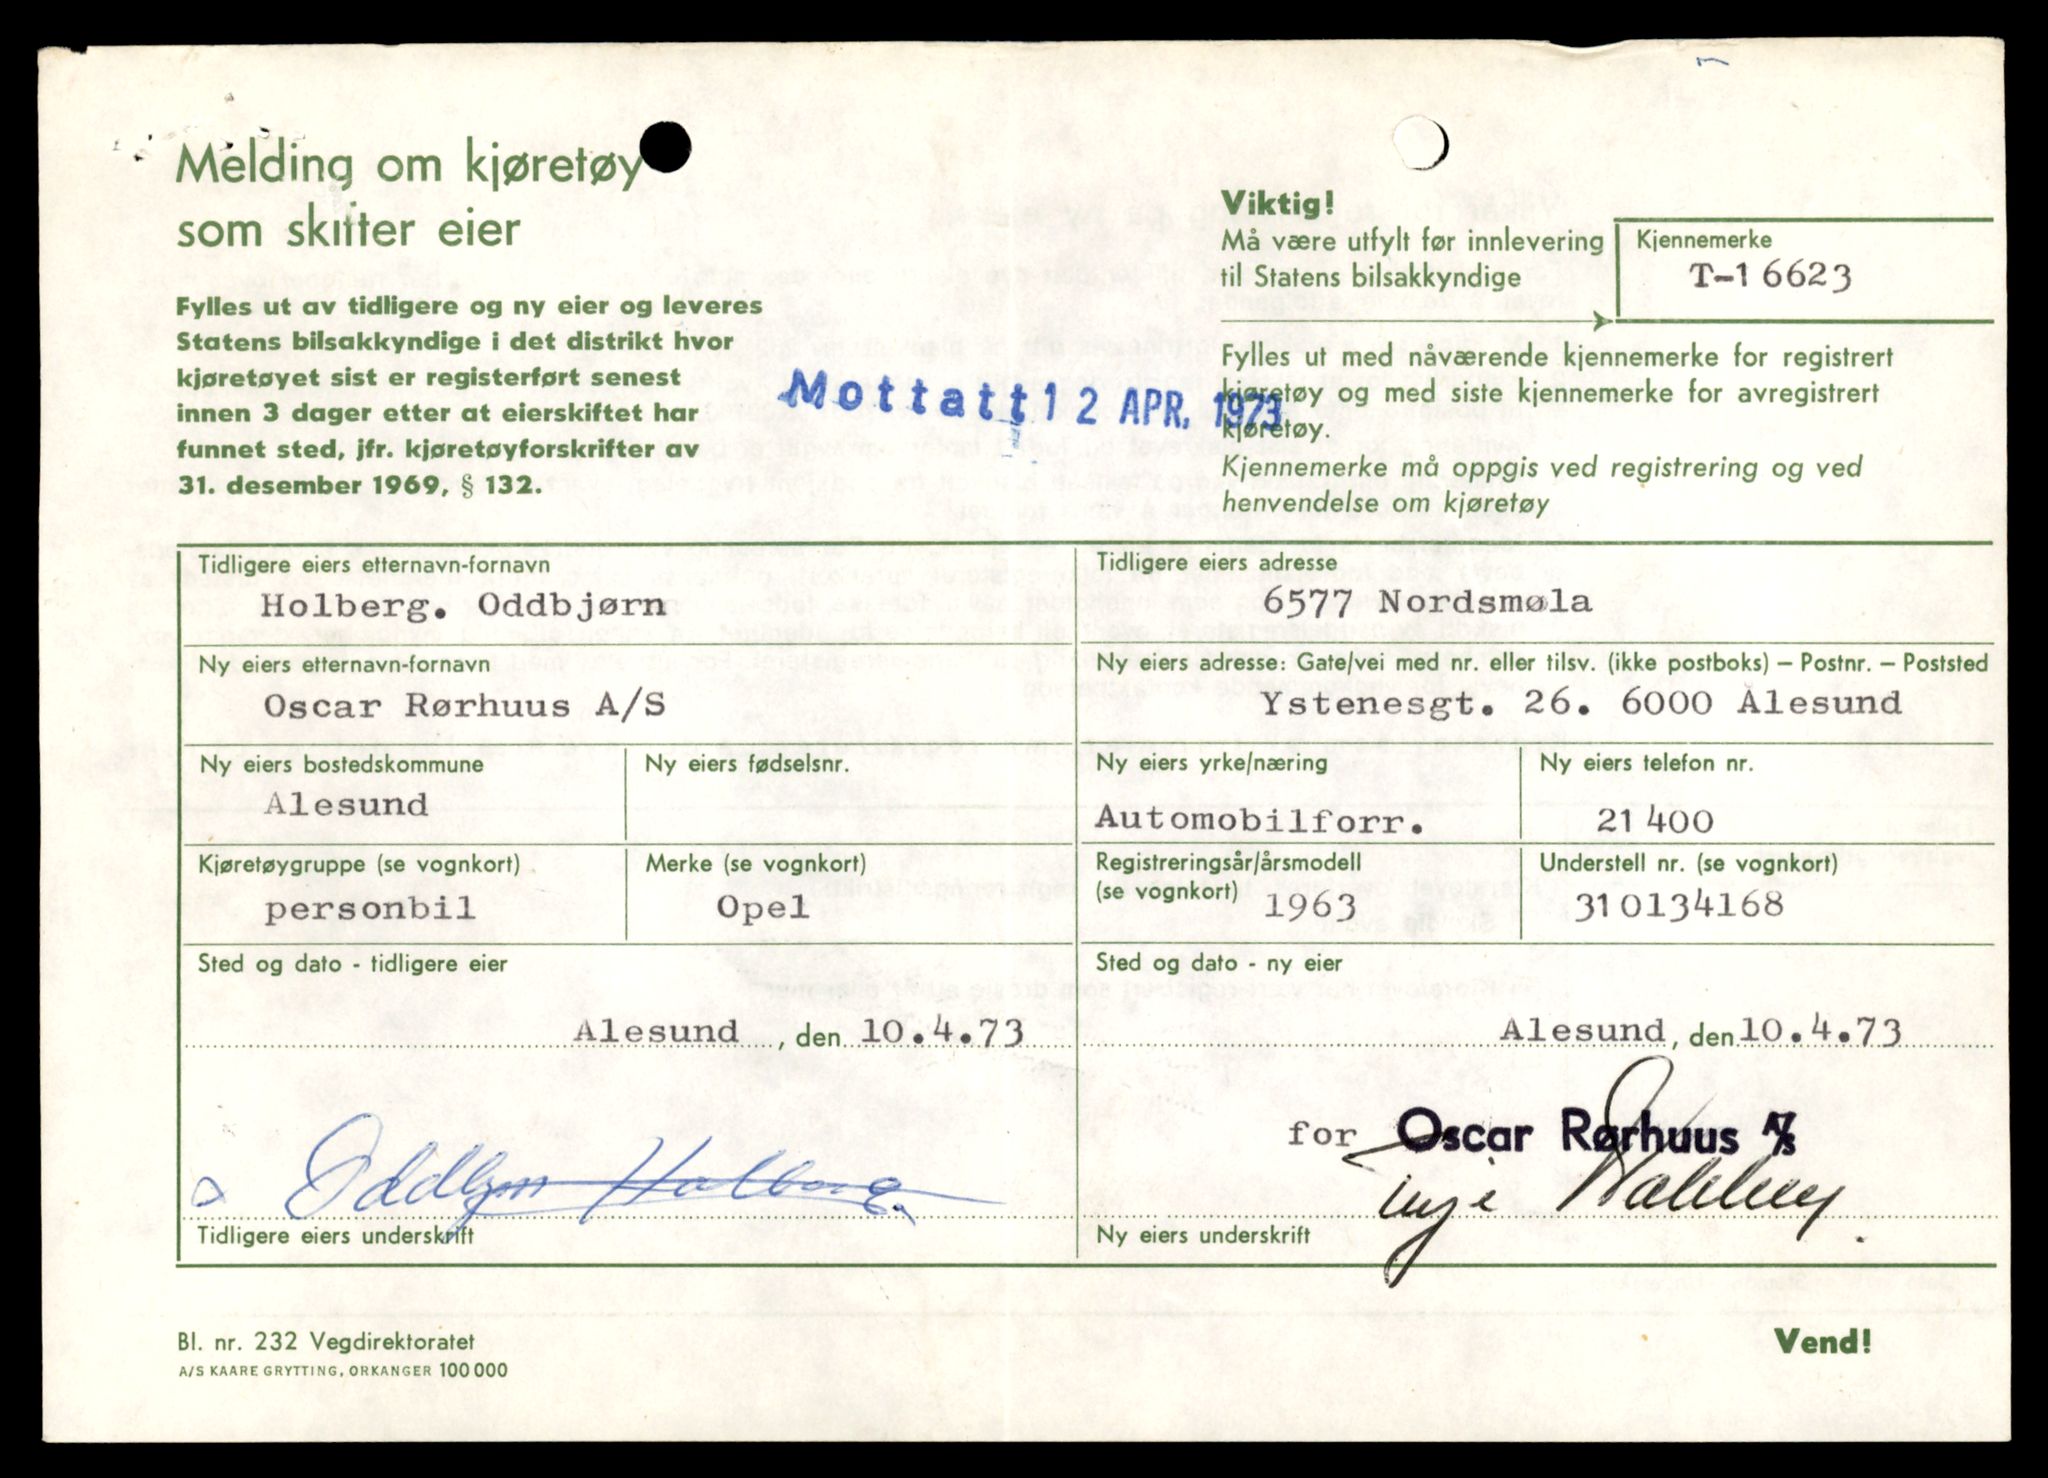 Melding om kjøretøy
som skifter eier
Fylles ut av tidligere og ny eier og leveres
Statens bilsakkyndige i det distrikt hvor
kjøretøyet sist er registerført senest
innen 3 dager etter at eierskiftet har
funnet sted, jfr. kjøretøyforskrifter av
31. desember 1969, § 132.
Mottatt 12 APR. 1973
Viktig!
Må være utfylt før innlevering
til Statens bilsakkyndige
Kjennemerke
T-16623
Fylles ut med nåværende kjennemerke for registrert
kjøretøy og med siste kjennemerke for avregistrert
kjøretøy.
Kjennemerke må oppgis ved registrering og ved
henvendelse om kjøretøy
Tidligere eiers etternavn-fornavn
Holberg. Oddbjørn
Tidligere eiers adresse
6577 Nordsmøla
Ny eiers etternavn-fornavn
Oscar Rørhuus A/S
Ny eiers adresse: Gate/vei med nr. eller tilsv. (ikke postboks) – Postnr. – Poststed
Ystenesgt. 26. 6000 Ålesund
Ny eiers bostedskommune
Ålesund
Ny eiers fødselsnr.
Ny eiers yrke/næring
Automobilforr.
Ny eiers telefon nr.
21400
Kjøretøygruppe (se vognkort)
personbil
Merke (se vognkort)
Opel
Registreringsår/årsmodell
(se vognkort) 1963
Understell nr. (se vognkort)
310134168
Sted og dato - tidligere eier
Ålesund , den 10.4.73
Sted og dato - ny eier
Ålesund , den 10.4.73
Oddbjørn Holberg.
Tidligere eiers underskrift
for Oscar Rørhuus A/S
Ny eiers underskrift
Bl. nr. 232 Vegdirektoratet
A/S KAARE GRYTTING, ORKANGER 100 000
Vend!